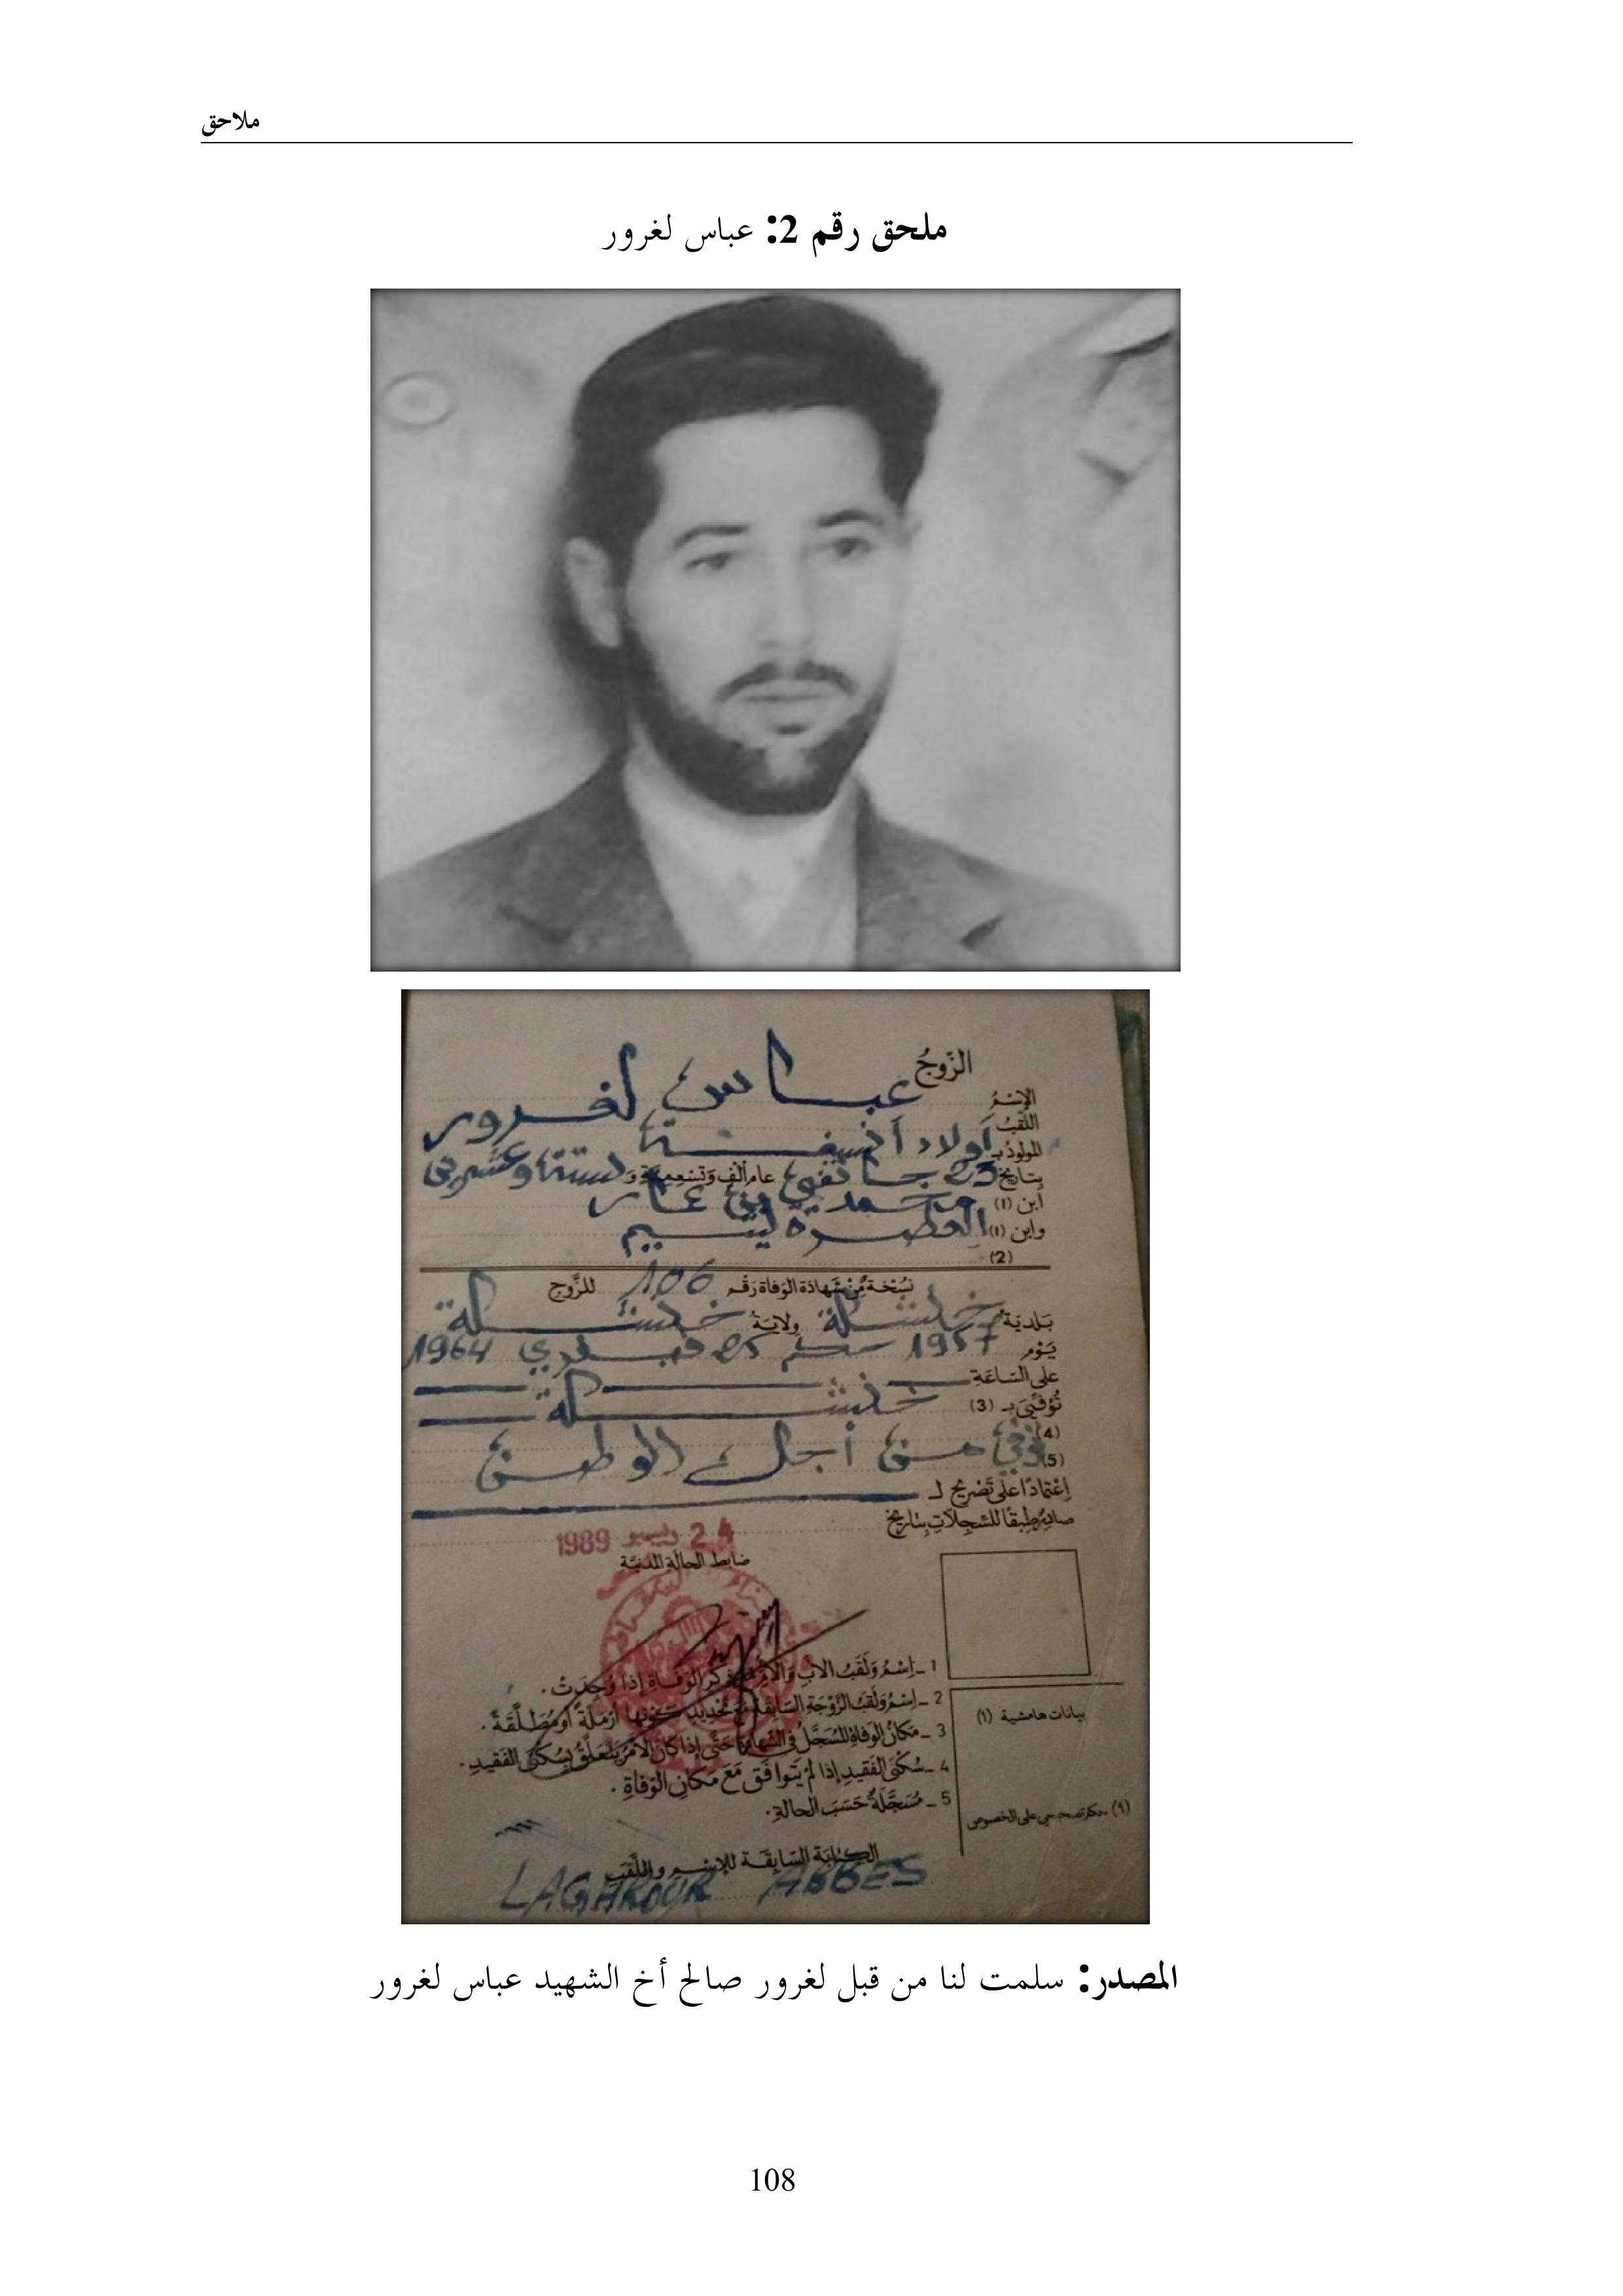 ملاحق
ملحق رقم 2: عباس لغرور
الزّوجُ
الإسْمُ عباس لغرور
اللّقبُ
المولودُ بـ أولاد انسيغة
بتاريخ 23 جانفي عام ألف وتسعمئة و ستة وعشرين
ابن (1) محمد بن عمار
وابن (1)
(2)
نسْخَة مِنْ شهَادة الوَفاة رَقْم 106 للزَّوج
بَلديّة خنشلة ولايَة خنشلة
يَوْم 1957 حكم 25 فيفري 1964
على السَّاعَةِ
تُوُفِّيَ بـ (3) خنشلة
(4)
(5) توفي من أجل الوطن
إعْتمادًا على تَصْريح لـ
صادِر طبقًا للسّجلاتِ بتاريخ
24 ديسمبر 1989
ضابط الحالة المدنيّة
1 ـ إسْمُ وَلَقَبُ الأبِ وَالأمِّ مع ذكر الوفاة إذا وُجِدَتْ .
2 ـ إسْمُ وَلَقبُ الزَّوْجَةِ السّابقة مع تحْديد كونها أرْملَةً أو مُطَلَّقَةً .
3 ـ مَكانُ الوَفاةِ المُسَجَّلُ في الشهادة حَتَّى إذا كانَ الأمْرُ يتعَلَّقُ بسُكْنَى الفَقيدِ .
4 ـ سُكْنَى الفَقيدِ إذا لَمْ يَتَوافَقْ مَعَ مَكانِ الوَفاةِ .
5 ـ مُسَجَّلَةٌ حَسَبَ الحالةِ .
بيانات هامشية (1)
(1) على الخصوص
الكِتابَة السّابِقَة لِلإسْمِ واللَّقَبِ
LAGHROUR ABBES
المصدر: سلمت لنا من قبل لغرور صالح أخ الشهيد عباس لغرور
108